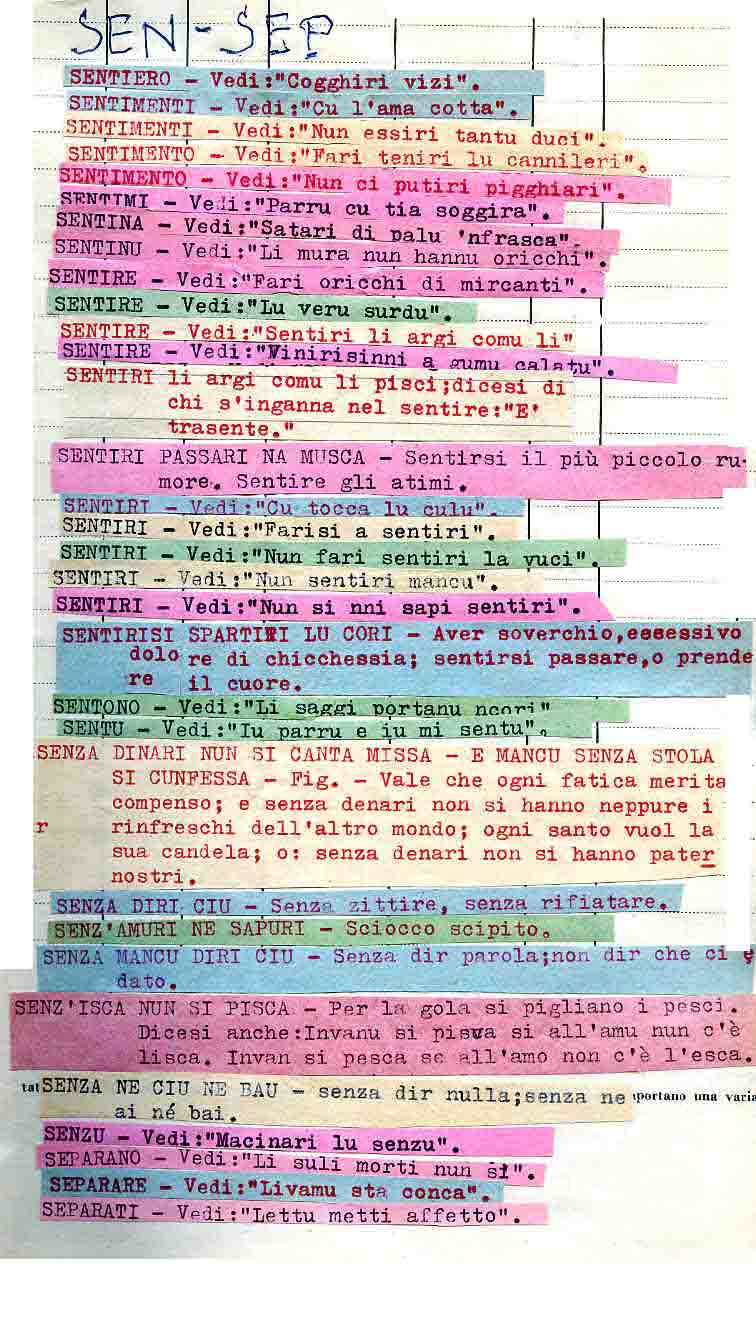 SEN-SEP
SENTIERO - Vedi:"Cogghiri vizi".
SENTIMENTI - Vedi:"Cu l'ama cotta".
SENTIMENTI - Vedi:"Nun essiri tantu duci".
SENTIMENTO - Vedi:"Fari teniri lu cannileri".
SENTIMENTO - Vedi:"Nun ci putiri pigghiari".
SENTIMI - Vedi:"Parru cu tia soggira".
SENTINA - Vedi:"Satari di palu 'nfrasca".
SENTINU - Vedi:"Li mura nun hannu oricchi".
SENTIRE - Vedi:"Fari oricchi di mircanti".
SENTIRE - Vedi:"Lu veru surdu".
SENTIRE - Vedi:"Sentiri li argi comu li"
SENTIRE - Vedi:"Vinirisinni a gumu calatu".
SENTIRI li argi comu li pisci;dicesi di
chi s'inganna nel sentire:"E'
trasente."
SENTIRI PASSARI NA MUSCA - Sentirsi il più piccolo ru-
more. Sentire gli atimi.
SENTIRI - Vedi:"Cu tocca lu culu".
SENTIRI - Vedi:"Farisi a sentiri".
SENTIRI - Vedi:"Nun fari sentiri la vuci".
SENTIRI - Vedi:"Nun sentiri mancu".
SENTIRI - Vedi:"Nun si nni sapi sentiri".
SENTIRISI SPARTIRI LU CORI - Aver soverchio,eesessivo
dolo re di chicchessia; sentirsi passare,o prende
re il cuore.
SENTONO - Vedi:"Li saggi portanu ncori"
SENTU - Vedi:"Iu parru e iu mi sentu".
SENZA DINARI NUN SI CANTA MISSA - E MANCU SENZA STOLA
SI CUNFESSA - Fig. - Vale che ogni fatica merita
compenso; e senza denari non si hanno neppure i
r rinfreschi dell'altro mondo; ogni santo vuol la
sua candela; o: senza denari non si hanno pater
nostri.
SENZA DIRI CIU - Senza zittire, senza rifiatare.
SENZ'AMURI NE SAPURI - Sciocco scipito.
SENZA MANCU DIRI CIU - Senza dir parola;non dir che ci è
dato.
SENZ'ISCA NUN SI PISCA - Per la gola si pigliano i pesci.
Dicesi anche:Invanu si pisva si all'amu nun c'è
lisca. Invan si pesca se all'amo non c'è l'esca.
tat SENZA NE CIU NE BAU - senza dir nulla;senza ne portano una varia
ai né bai.
SENZU - Vedi:"Macinari lu senzu".
SEPARANO - Vedi:"Li suli morti nun si".
SEPARARE - Vedi:"Livamu sta conca".
SEPARATI - Vedi:"Lettu metti affetto".